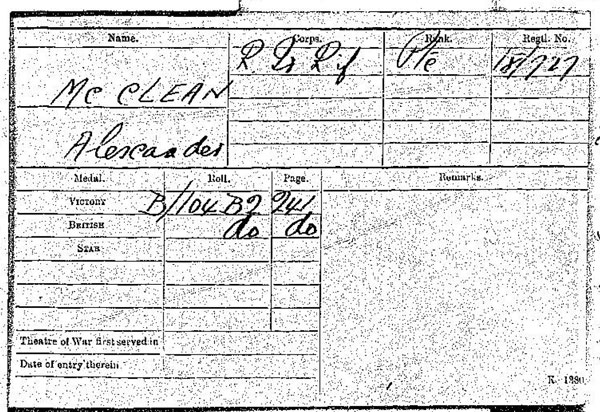 Name. Corps. Rank. Regtl. No.
R. Ir Rif Pte 18/727
Mc CLEAN
Alexander
Medal. Roll. Page. Remarks.
VICTORY B/104 B9 941
BRITISH do do
STAR
Theatre of War first served in
Date of entry therein
K. 1380